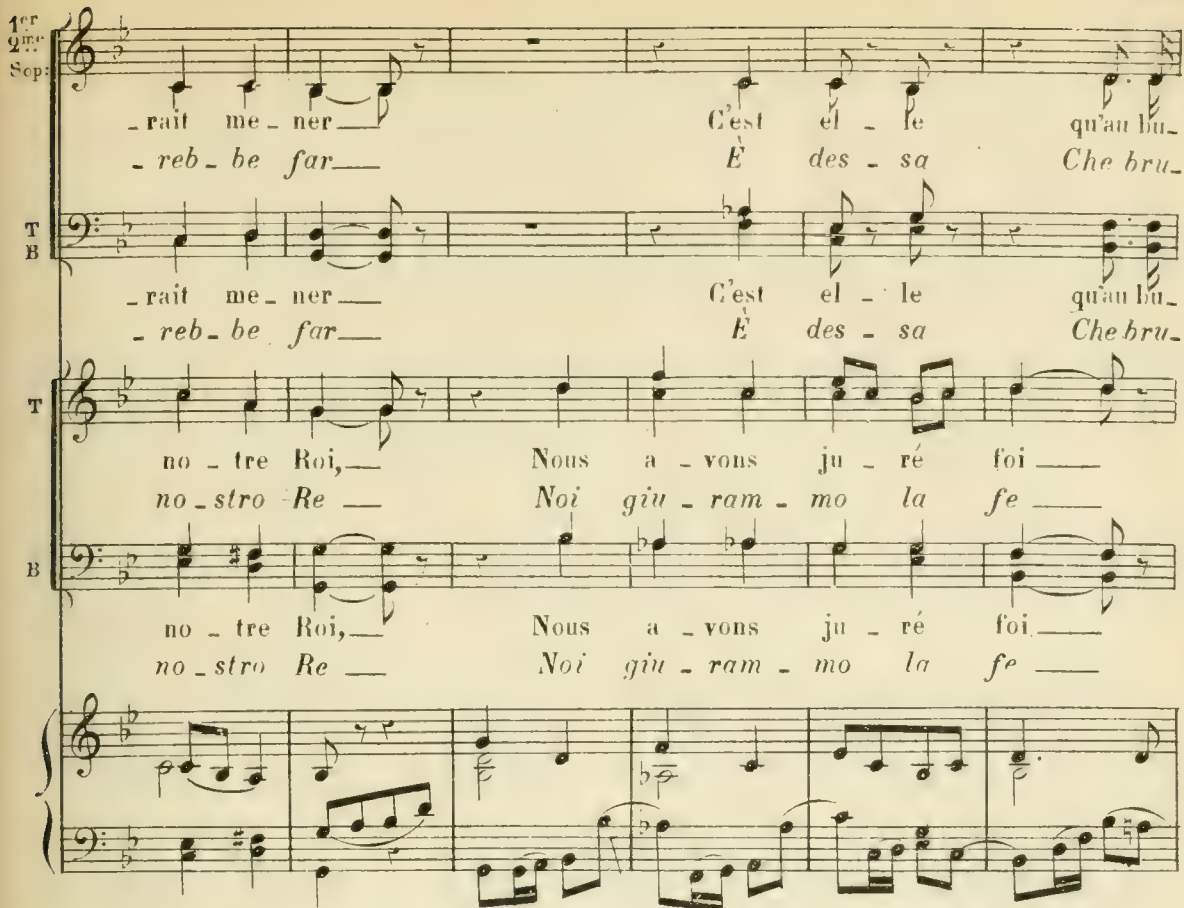 1er
2me
Sop:
_rait me_ner___ C'est el_le qu'au bu_
_reb_be far___ È des_sa Che bru_
T
B
_rait me_ner___ C'est el_le qu'au bu_
_reb_be far___ È des_sa Che bru_
T
no_tre Roi,___ Nous a_vons ju_ré foi___
no_stro Re Noi giu_ram_mo la fe___
B
no_tre Roi,___ Nous a_vons ju_ré foi___
no_stro Re___ Noi giu_ram_mo la fe___